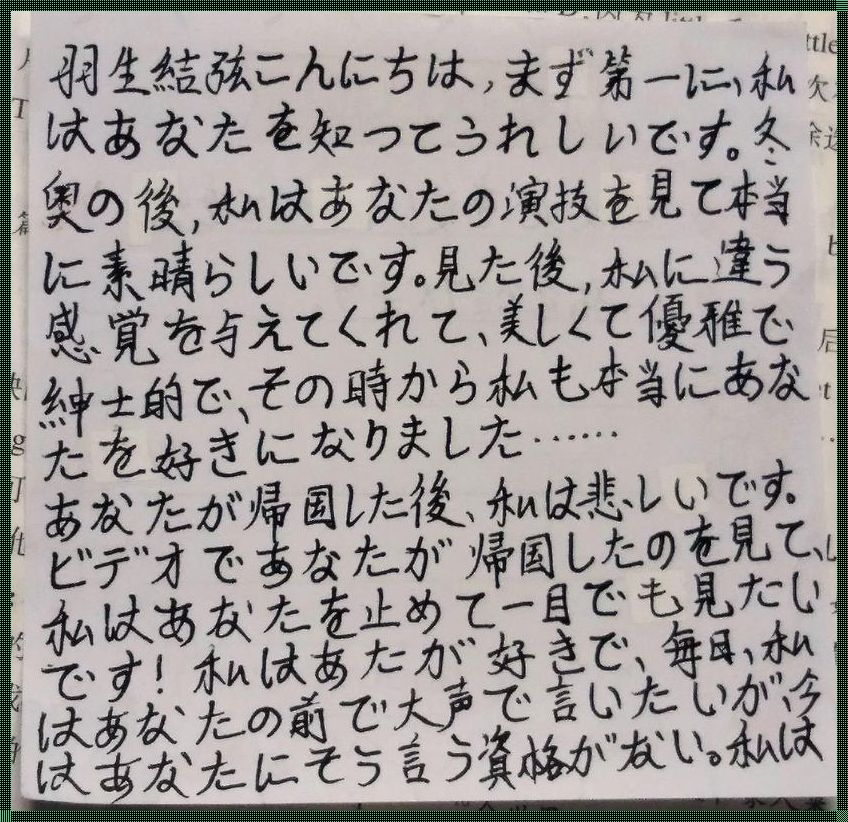 羽生結弦こんにちは，まず第一に、私
はあなたを知ってうれしいです。冬
奥の後，私はあなたの演技を見て本当
に素晴らしいです。見た後，私に違う
感覚を与えてくれて、美しくて優雅で
紳士的で、その時から私も本当にあな
たを好きになりました……
あなたが帰国した後、私は悲しいです。
ビデオであなたが帰国したのを見て、
私はあなたを止めて一目でも見たい
です！私はあたが好きで、毎日、私
はあなたの前で大声で言いたいが、今
はあなたにそう言う資格がない。私は